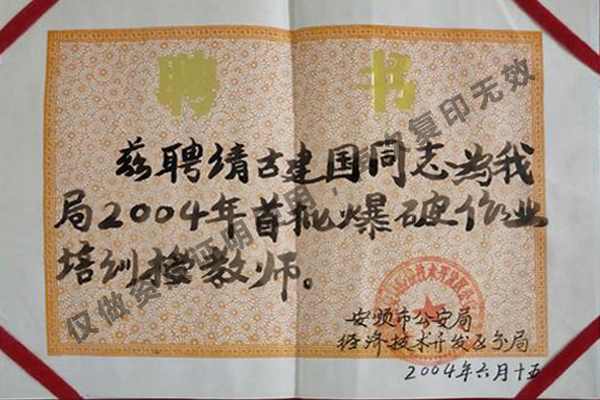 聘 书
兹聘请古建国同志为我
局2004年首批爆破作业
培训授教师。
安顺市公安局
经济技术开发区分局
2004年六月十五